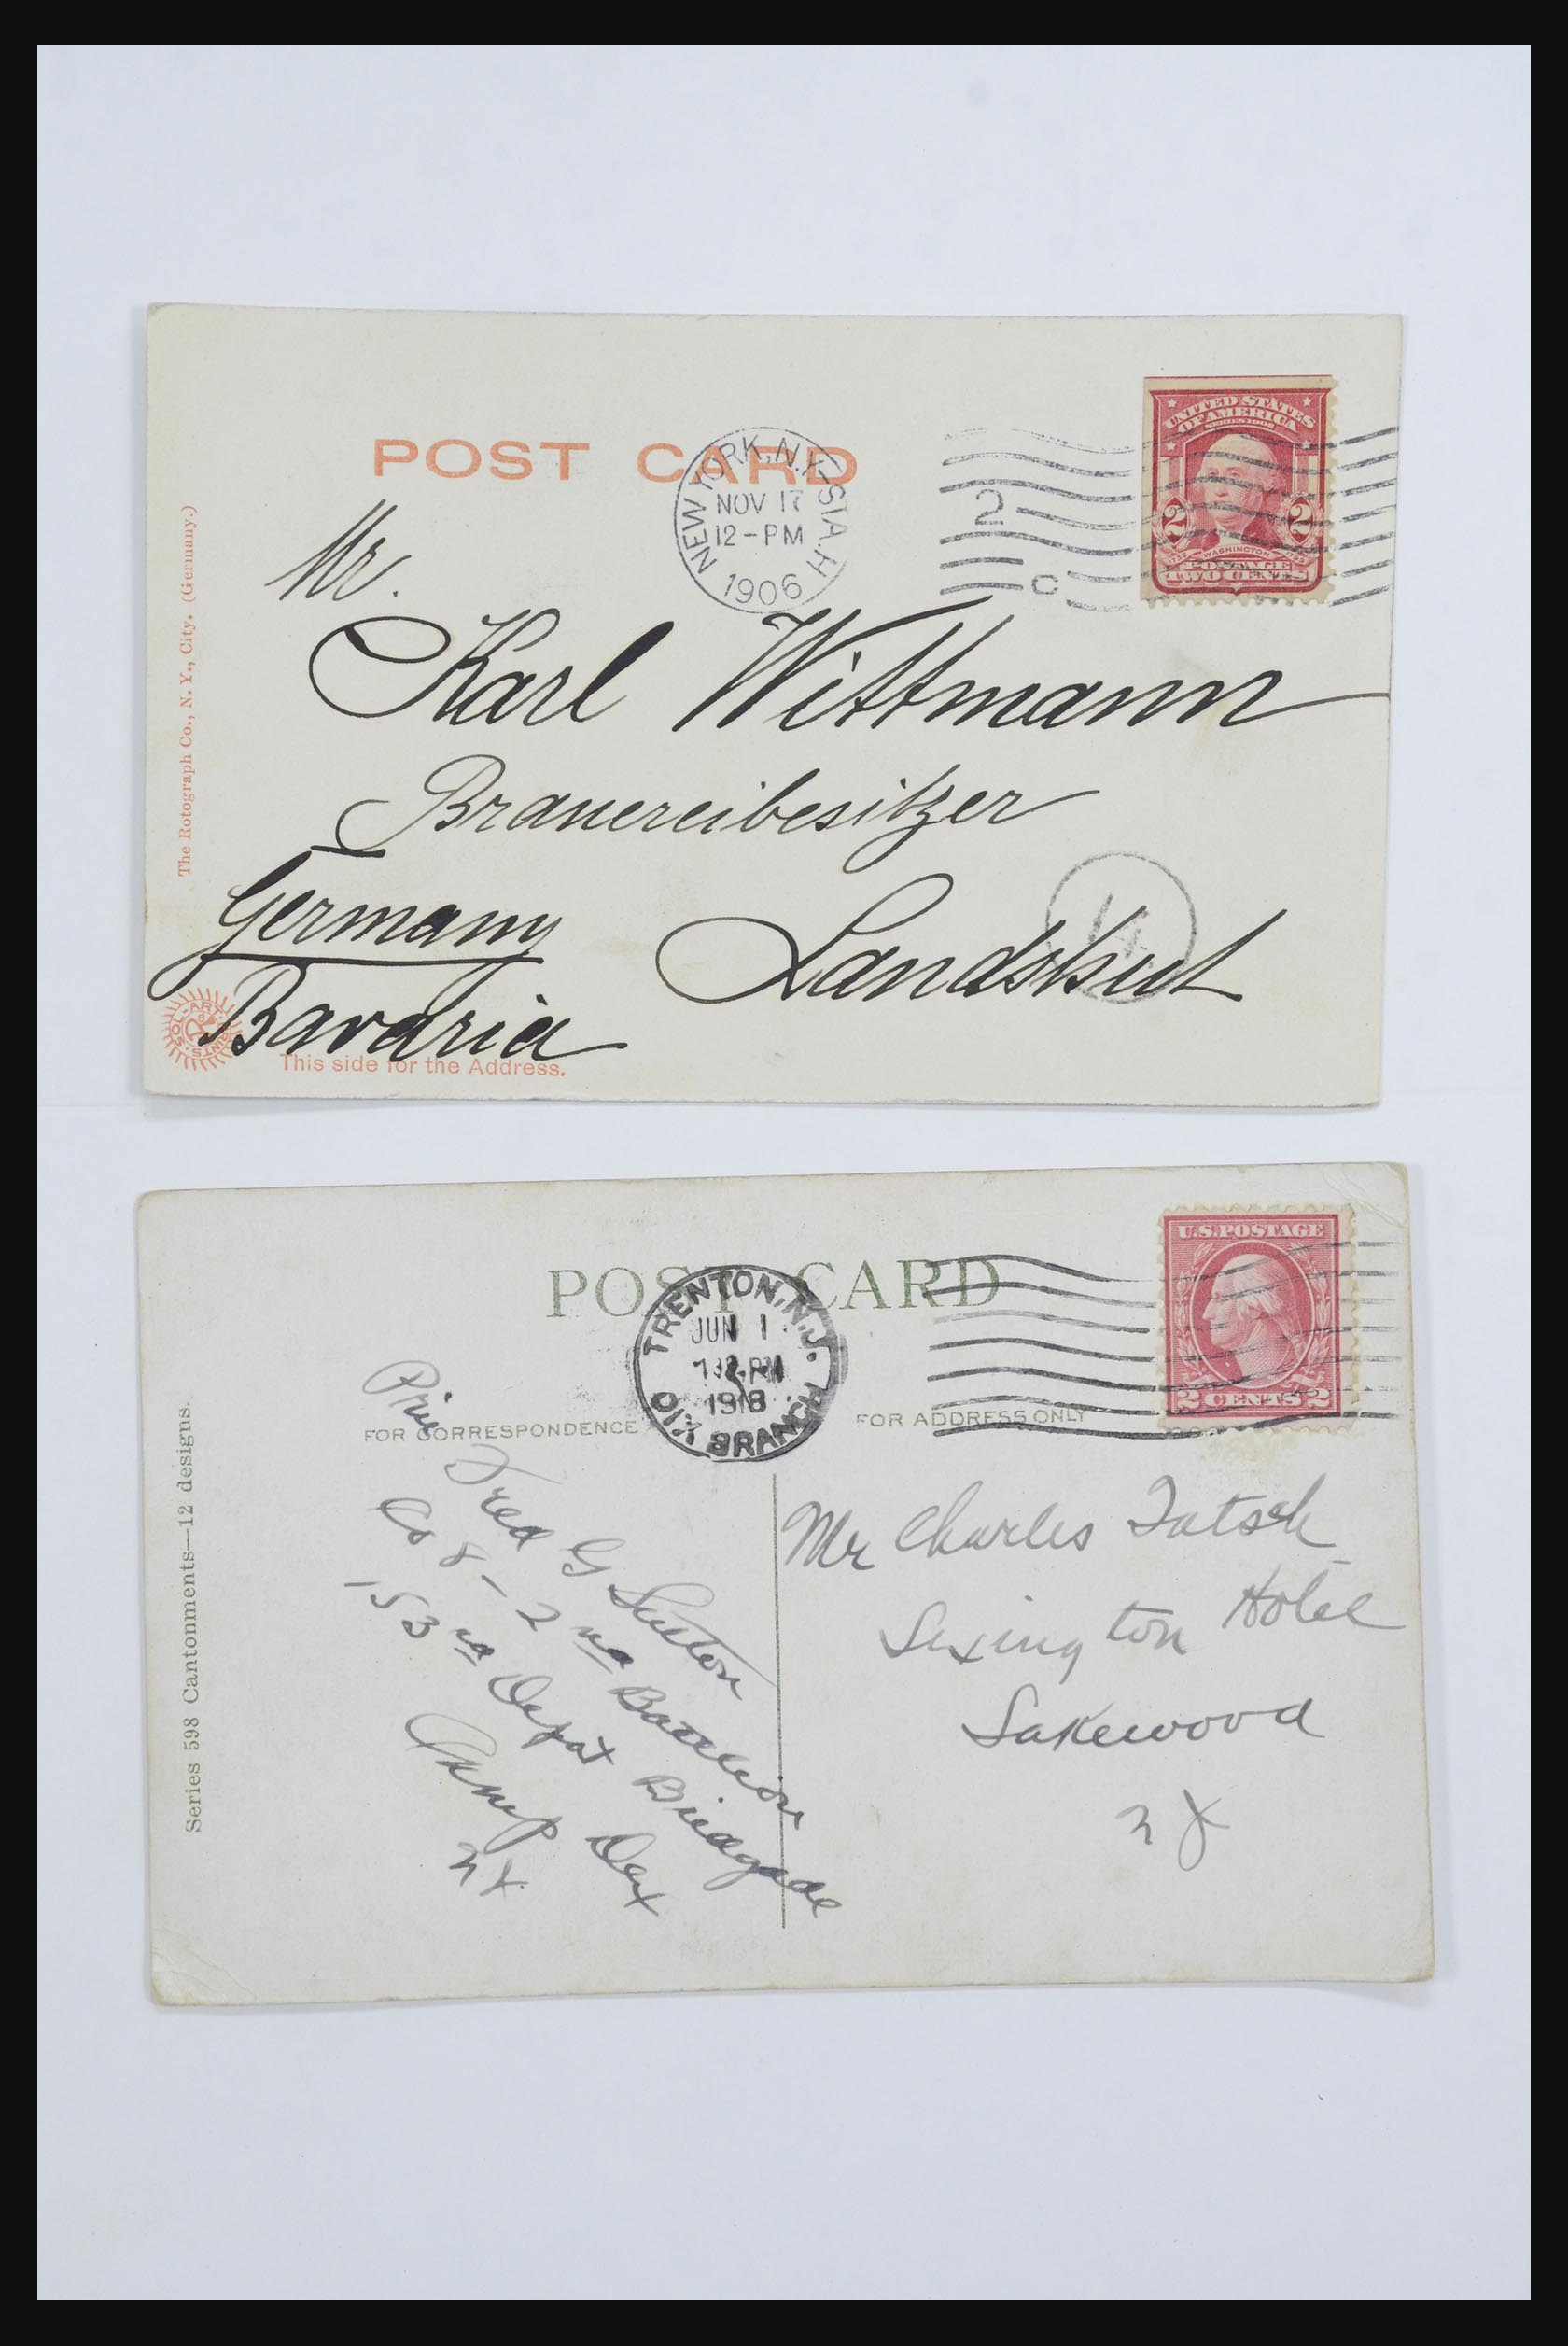 POST CARD
NEW YORK, N.Y.-STA.H
NOV 17
12-PM
1906
2
C
UNITED STATES
OF AMERICA
SERIES 1902
2 2
1732 WASHINGTON 1799
POSTAGE
TWO CENTS
Mr.
Karl Wittmann
Brauereibesitzer
Landshut
Germany
Bavaria
This side for the Address.
SOL-ART PRINTS
The Rotograph Co., N. Y., City. (Germany.)
POST CARD
TRENTON, N.J.
JUN 1
PM
1918
DIX BRANCH
U.S. POSTAGE
2 CENTS 2
FOR CORRESPONDENCE
FOR ADDRESS ONLY
Priv Fred G Sutton
Co 8 - 2nd Battelion
153rd Depot Bridgade
Camp Dix
NJ.
Mr Charles
Lexington Hotel
Lakewood
NJ
Series 598 Cantonments—12 designs.